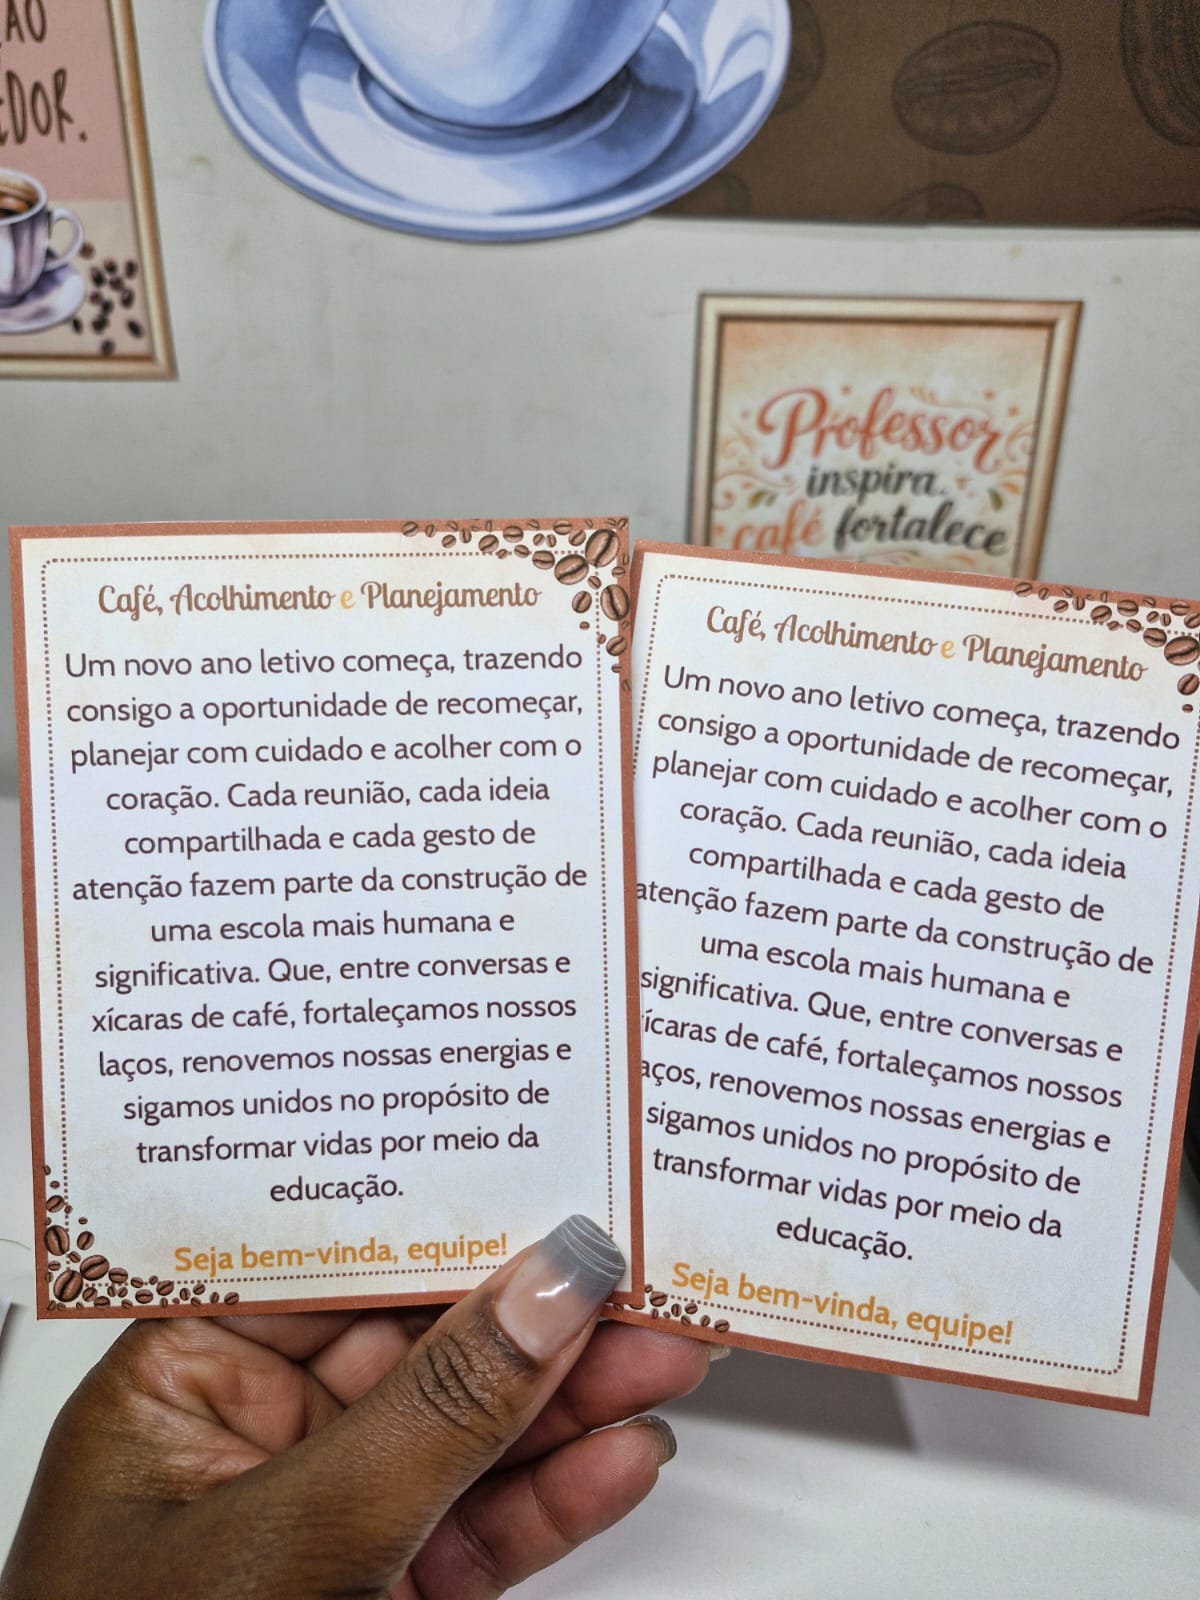 EDOR.
Professor
inspira.
café fortalece
Café, Acolhimento e Planejamento
Um novo ano letivo começa, trazendo
consigo a oportunidade de recomeçar,
planejar com cuidado e acolher com o
coração. Cada reunião, cada ideia
compartilhada e cada gesto de
atenção fazem parte da construção de
uma escola mais humana e
significativa. Que, entre conversas e
xícaras de café, fortaleçamos nossos
laços, renovemos nossas energias e
sigamos unidos no propósito de
transformar vidas por meio da
educação.
Seja bem-vinda, equipe!
Café, Acolhimento e Planejamento
Um novo ano letivo começa, trazendo
consigo a oportunidade de recomeçar,
planejar com cuidado e acolher com o
coração. Cada reunião, cada ideia
compartilhada e cada gesto de
atenção fazem parte da construção de
uma escola mais humana e
significativa. Que, entre conversas e
ícaras de café, fortaleçamos nossos
aços, renovemos nossas energias e
sigamos unidos no propósito de
transformar vidas por meio da
educação.
Seja bem-vinda, equipe!